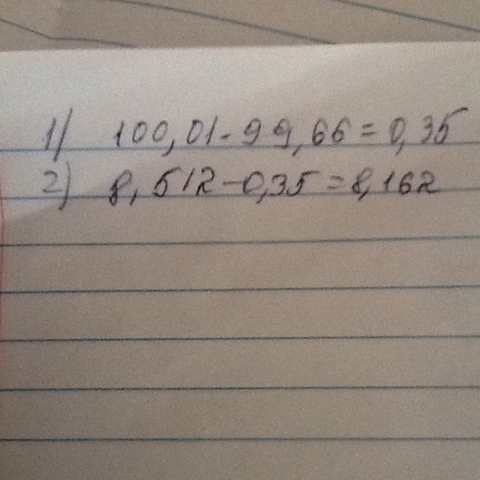 1) 100,01-99,66=0,35
2) 8,512-0,35=8,162